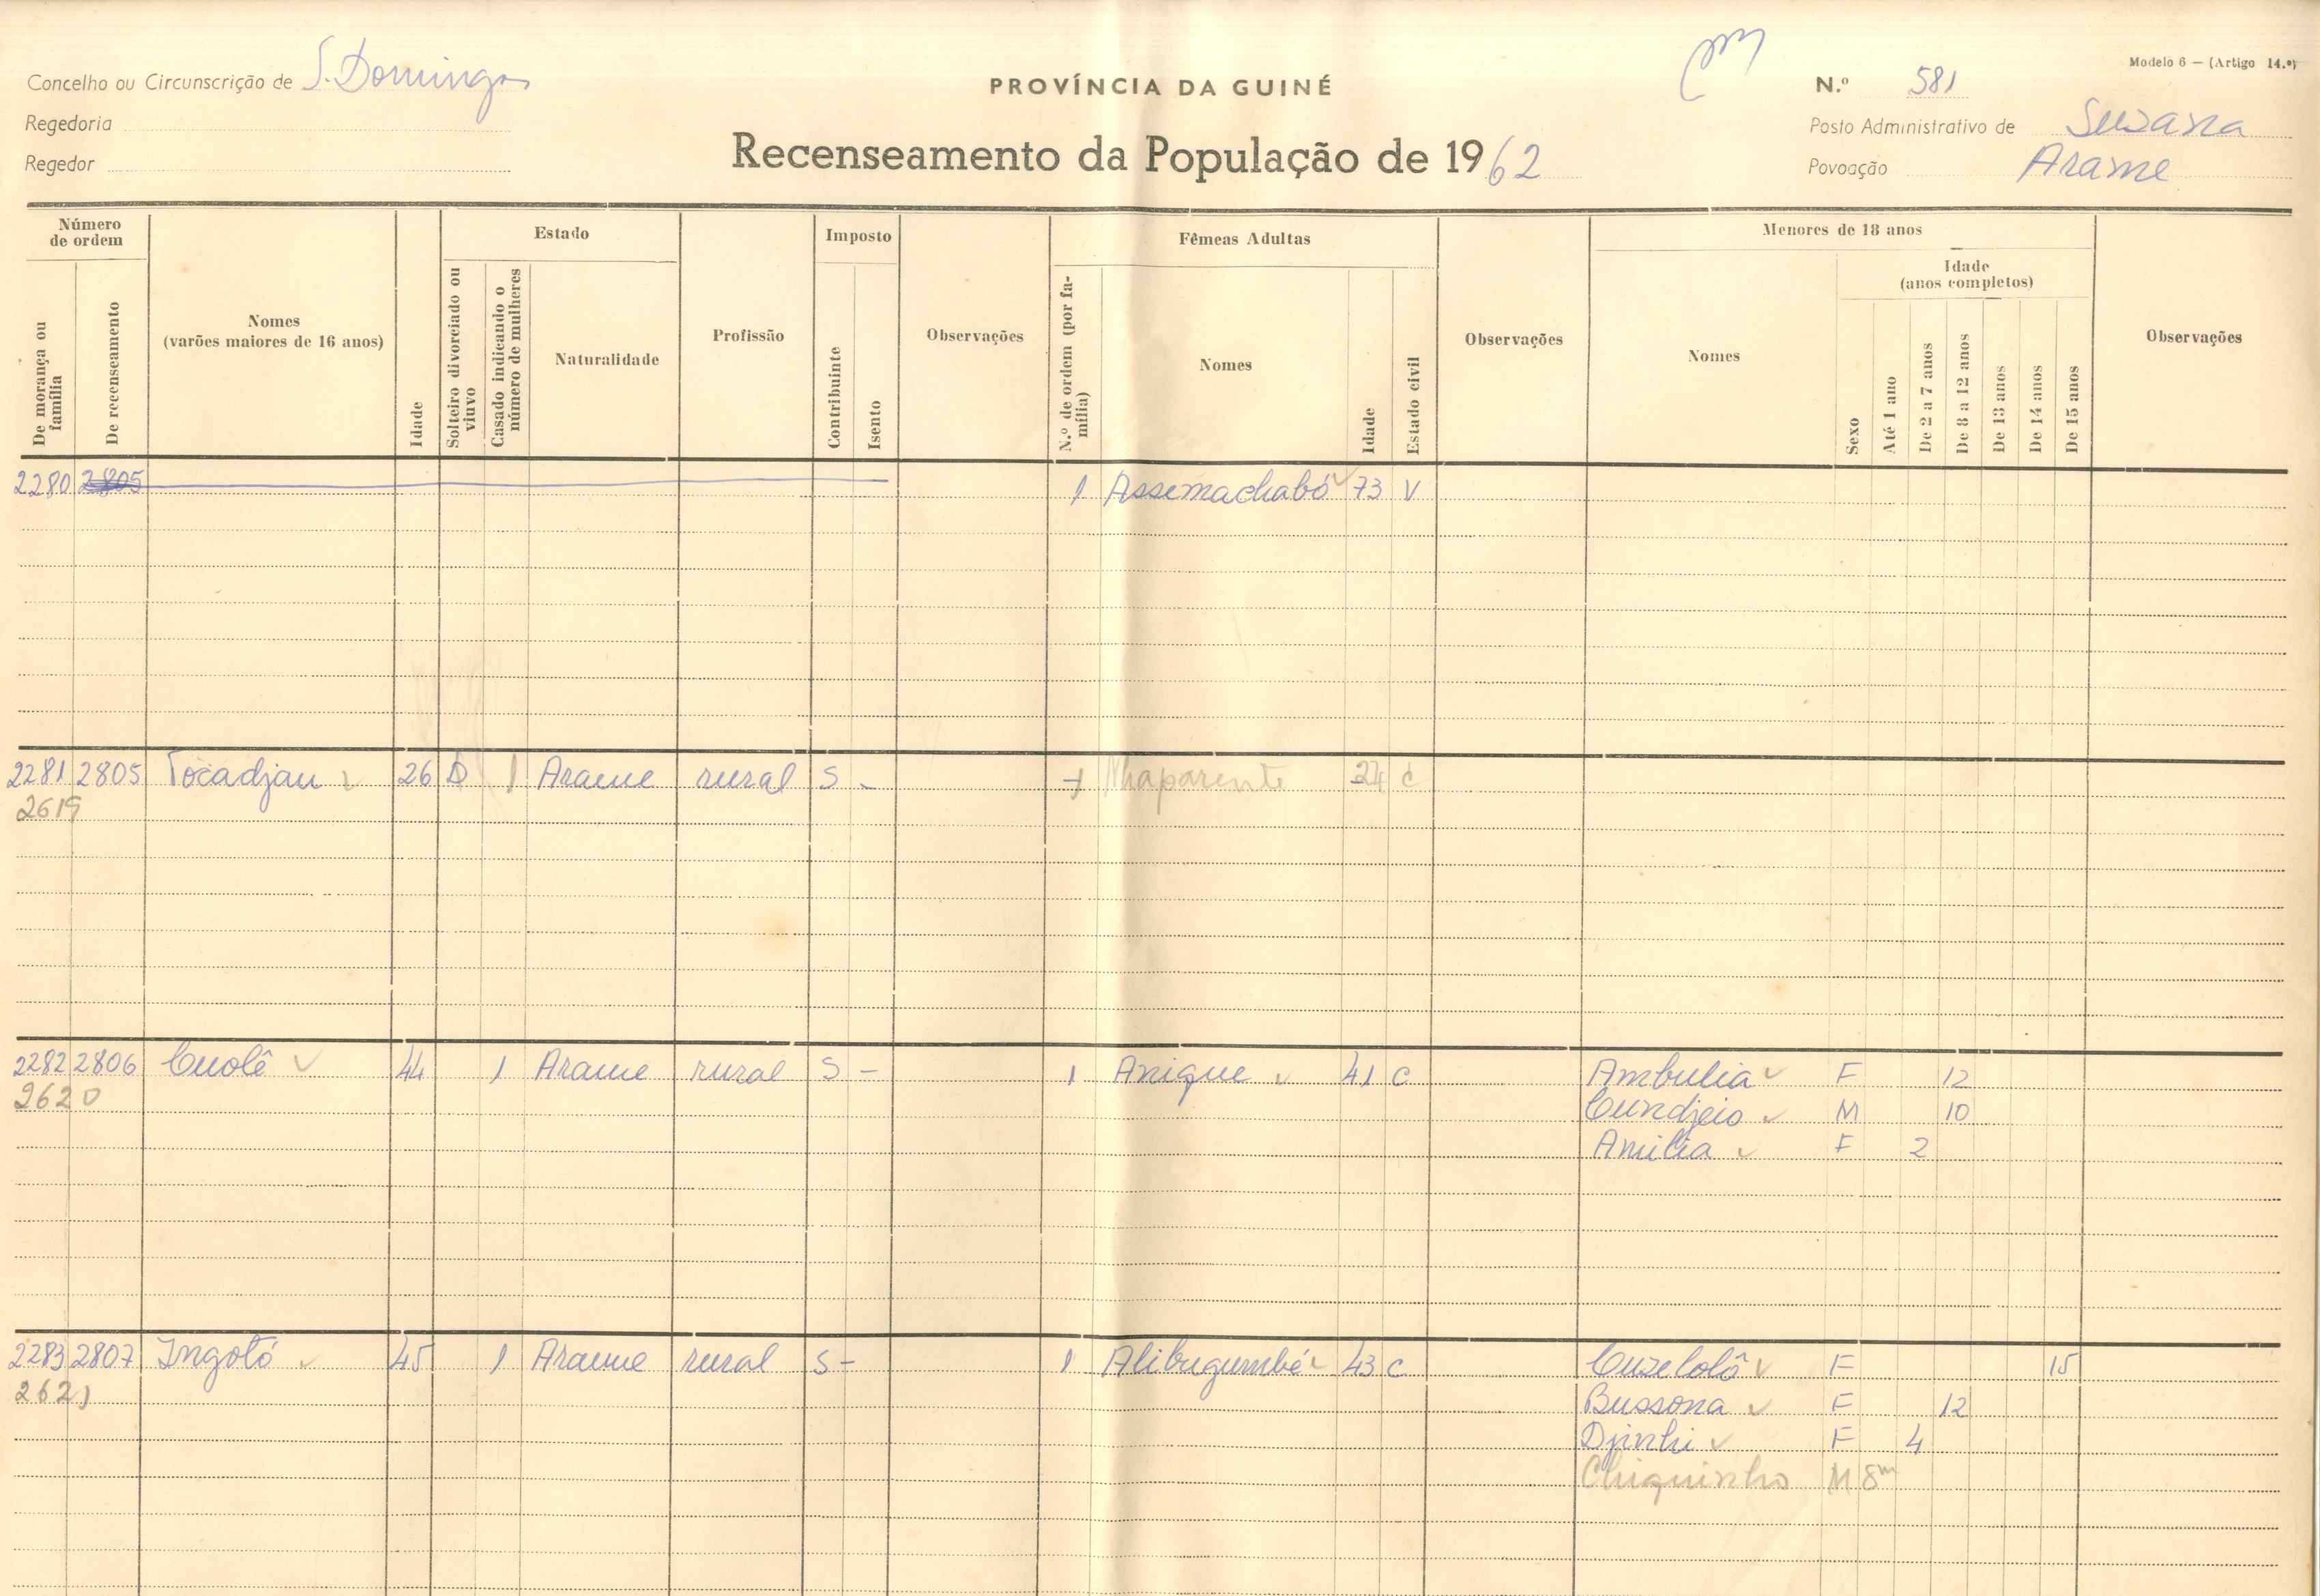 Concelho ou Circunscrição de S. Domingos
Regedoria
Regedor
PROVÍNCIA DA GUINÉ
Recenseamento da População de 1962
Modelo 6 — (Artigo 14.º)
N.º 581
Posto Administrativo de Suzana
Povoação Arame
Número de ordem
De morança ou família
De recenseamento
Nomes (varões maiores de 16 anos)
Idade
Estado
Solteiro divorciado ou viuvo
Casado indicando o número de mulheres
Naturalidade
Profissão
Imposto
Contribuinte
Isento
Observações
Fêmeas Adultas
N.º de ordem (por família)
Nomes
Idade
Estado civil
Observações
Menores de 18 anos
Nomes
Sexo
Idade (anos completos)
Até 1 ano
De 2 a 7 anos
De 8 a 12 anos
De 13 anos
De 14 anos
De 15 anos
Observações
2280 2805 1 Assemachabó 73 V
2281 2805 Tocadjau 26 D 1 Arame rural S - 1 Nhaparente 24 c
2619
2282 2806 Cuolê 44 1 Arame rural S - 1 Anique 41 c Ambulia F 12
2620 Cundjeio M 10
Amilia F 2
2283 2807 Ingotó 45 1 Arame rural S - 1 Alibugumbé 43 c Cuzelolô F 15
2621 Bussona F 12
Djinhi F 4
Chiquinho M 8m